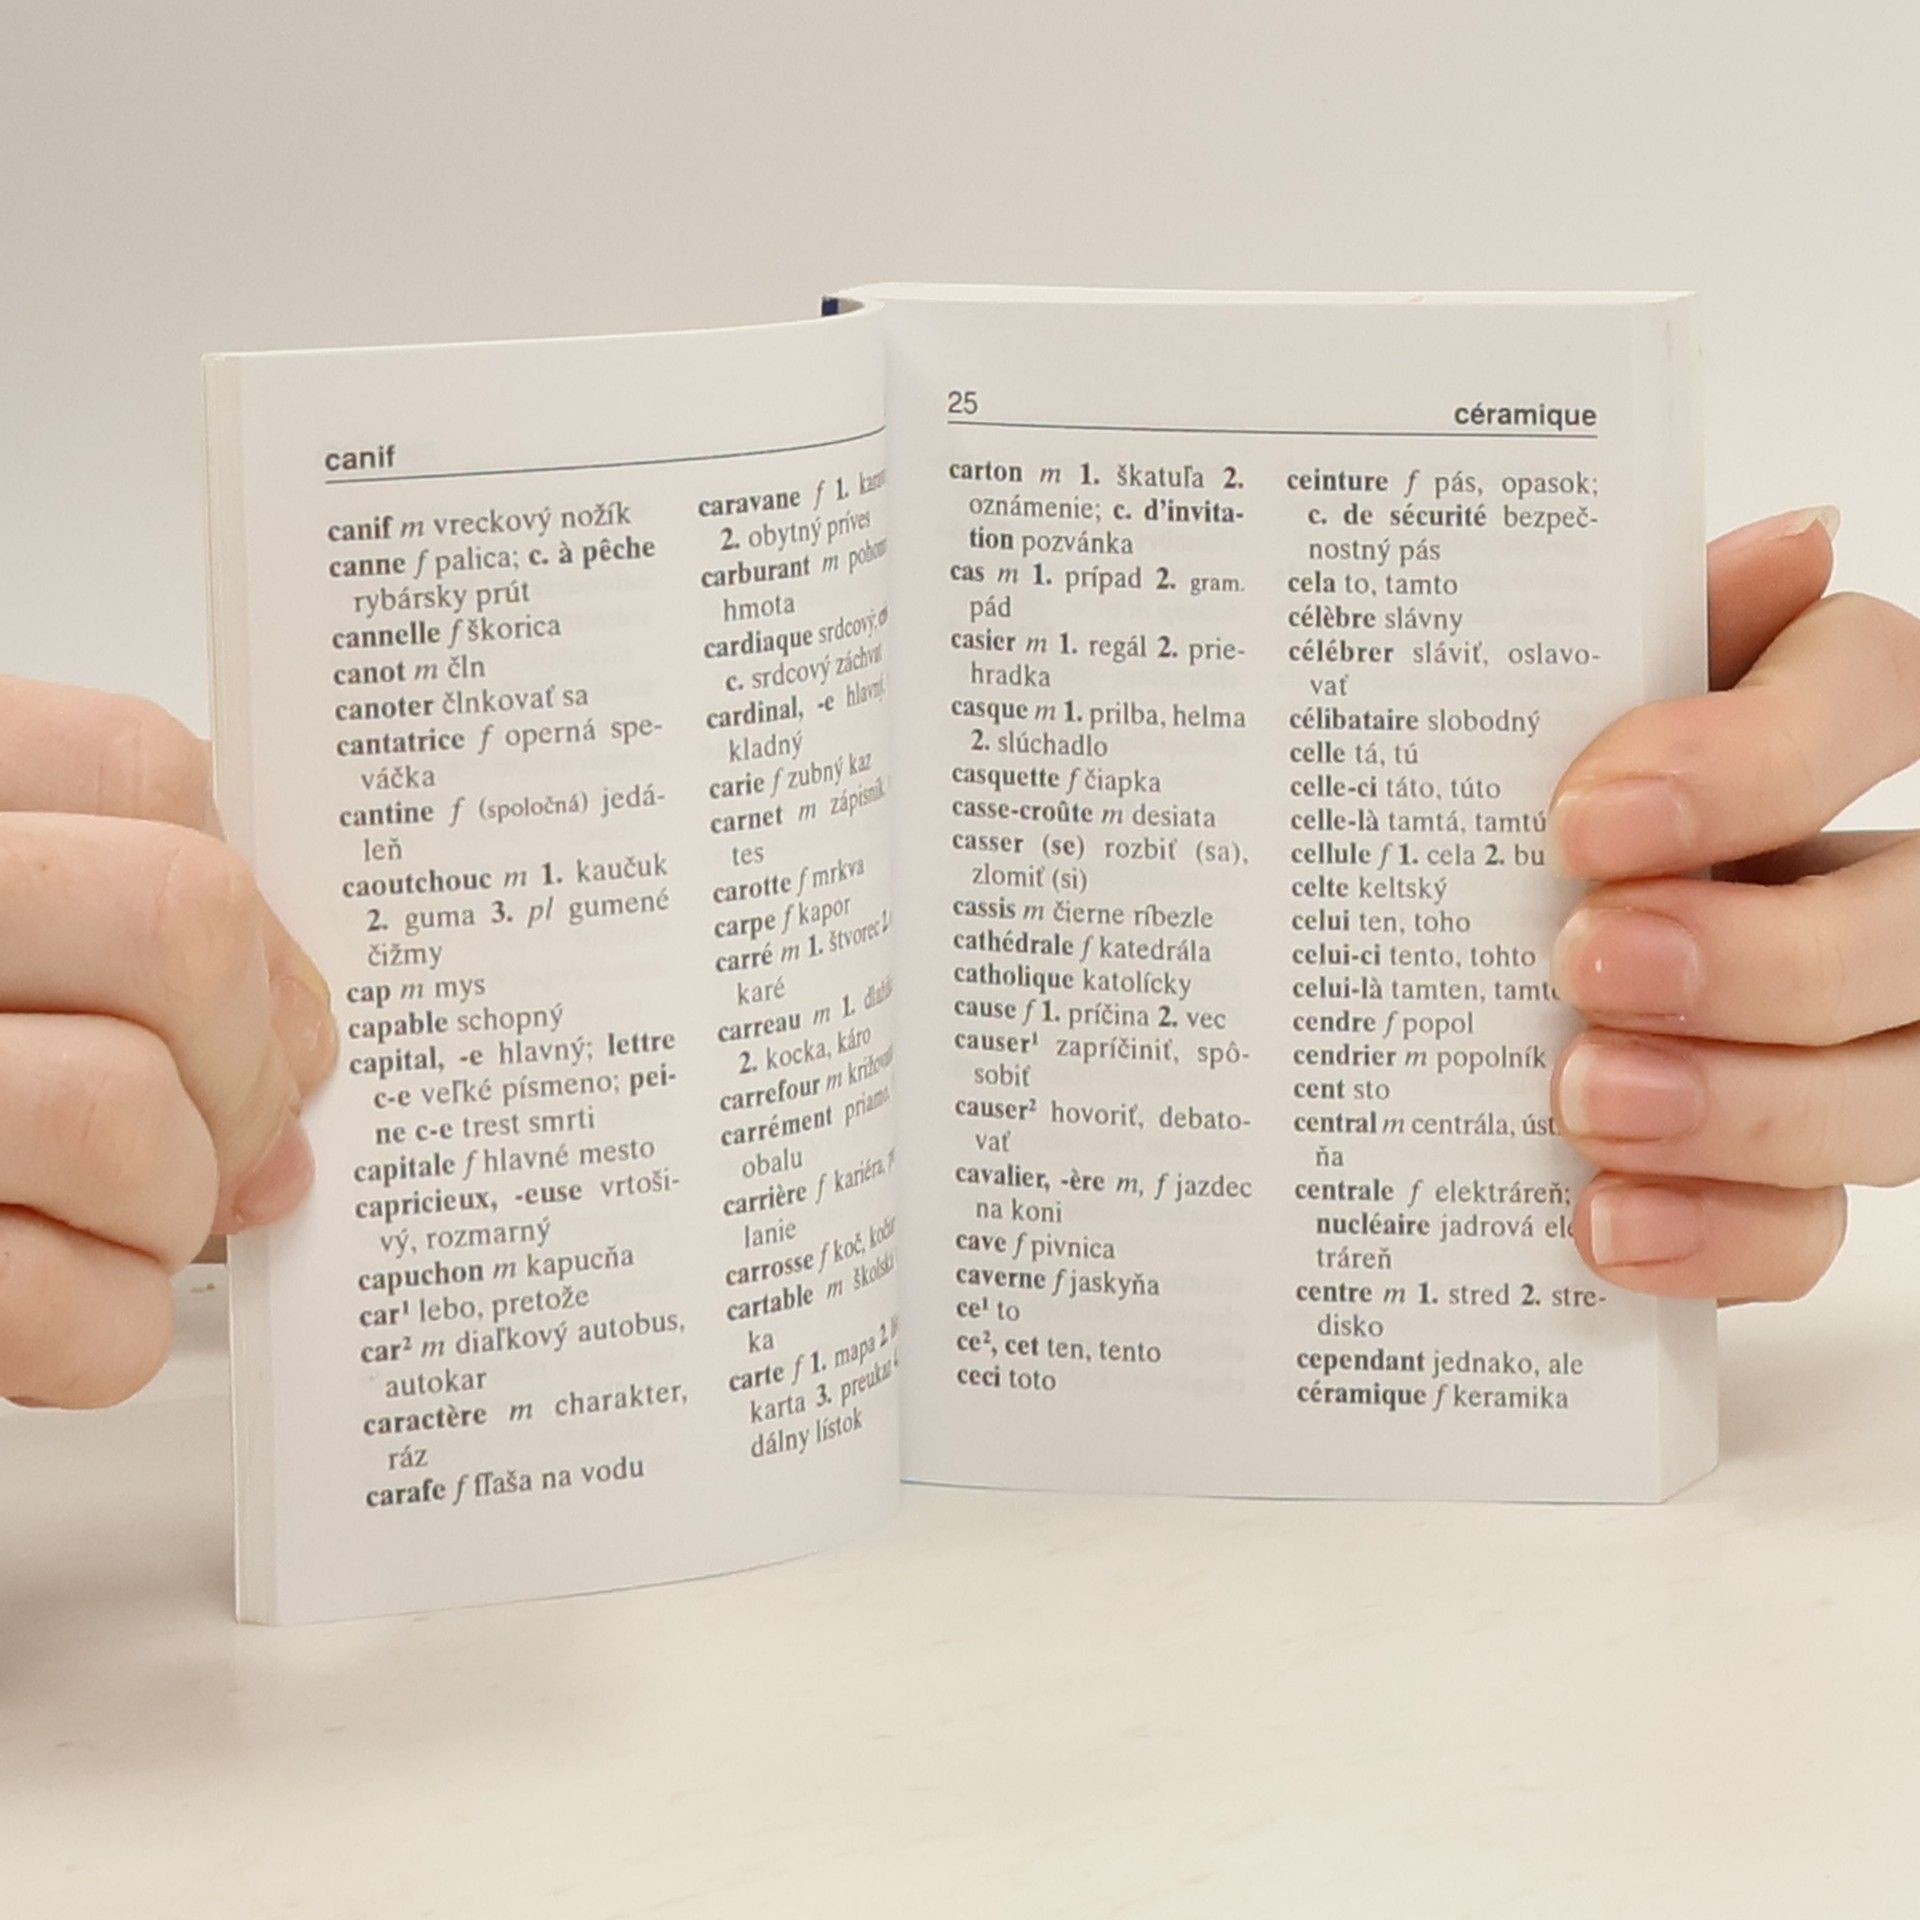 canif
canif m vreckový nožík
canne f palica; c. à pêche
rybársky prút
cannelle f škorica
canot m čln
canoter člnkovať sa
cantatrice f operná spe-
váčka
cantine f (spoločná) jedá-
leň
caoutchouc m 1. kaučuk
2. guma 3. pl gumené
čižmy
cap m mys
capable schopný
capital, -e hlavný; lettre
c-e veľké písmeno; pei-
ne c-e trest smrti
capitale f hlavné mesto
capricieux, -euse vrtoši-
vý, rozmarný
capuchon m kapucňa
car¹ lebo, pretože
car² m diaľkový autobus,
autokar
caractère m charakter,
ráz
carafe f fľaša na vodu
caravane f 1.
2. obytný príves
carburant m
hmota
cardiaque srdcový,
c. srdcový záchvat
cardinal, -e hlavný,
kladný
carie f zubný kaz
carnet m zápisník
tes
carotte f mrkva
carpe f kapor
carré m 1. štvorec
karé
carreau m 1.
2. kocka, káro
carrefour m
carrément priamo,
obalu
carrière f kariéra,
lanie
carrosse f koč,
cartable m
ka
carte f 1. mapa 2.
karta 3. preukaz
dálny lístok
25
céramique
carton m 1. škatuľa 2.
oznámenie; c. d'invita-
tion pozvánka
cas m 1. prípad 2. gram.
pád
casier m 1. regál 2. prie-
hradka
casque m 1. prilba, helma
2. slúchadlo
casquette f čiapka
casse-croûte m desiata
casser (se) rozbiť (sa),
zlomiť (si)
cassis m čierne ríbezle
cathédrale f katedrála
catholique katolícky
cause f 1. príčina 2. vec
causer¹ zapríčiniť, spô-
sobiť
causer² hovoriť, debato-
vať
cavalier, -ère m, f jazdec
na koni
cave f pivnica
caverne f jaskyňa
ce¹ to
ce², cet ten, tento
ceci toto
ceinture f pás, opasok;
c. de sécurité bezpeč-
nostný pás
cela to, tamto
célèbre slávny
célébrer sláviť, oslavo-
vať
célibataire slobodný
celle tá, tú
celle-ci táto, túto
celle-là tamtá, tamtú
cellule f 1. cela 2. bu
celte keltský
celui ten, toho
celui-ci tento, tohto
celui-là tamten,
cendre f popol
cendrier m popolník
cent sto
central m centrála,
ňa
centrale f elektráreň;
nucléaire jadrová
tráreň
centre m 1. stred 2. stre-
disko
cependant jednako, ale
céramique f keramika